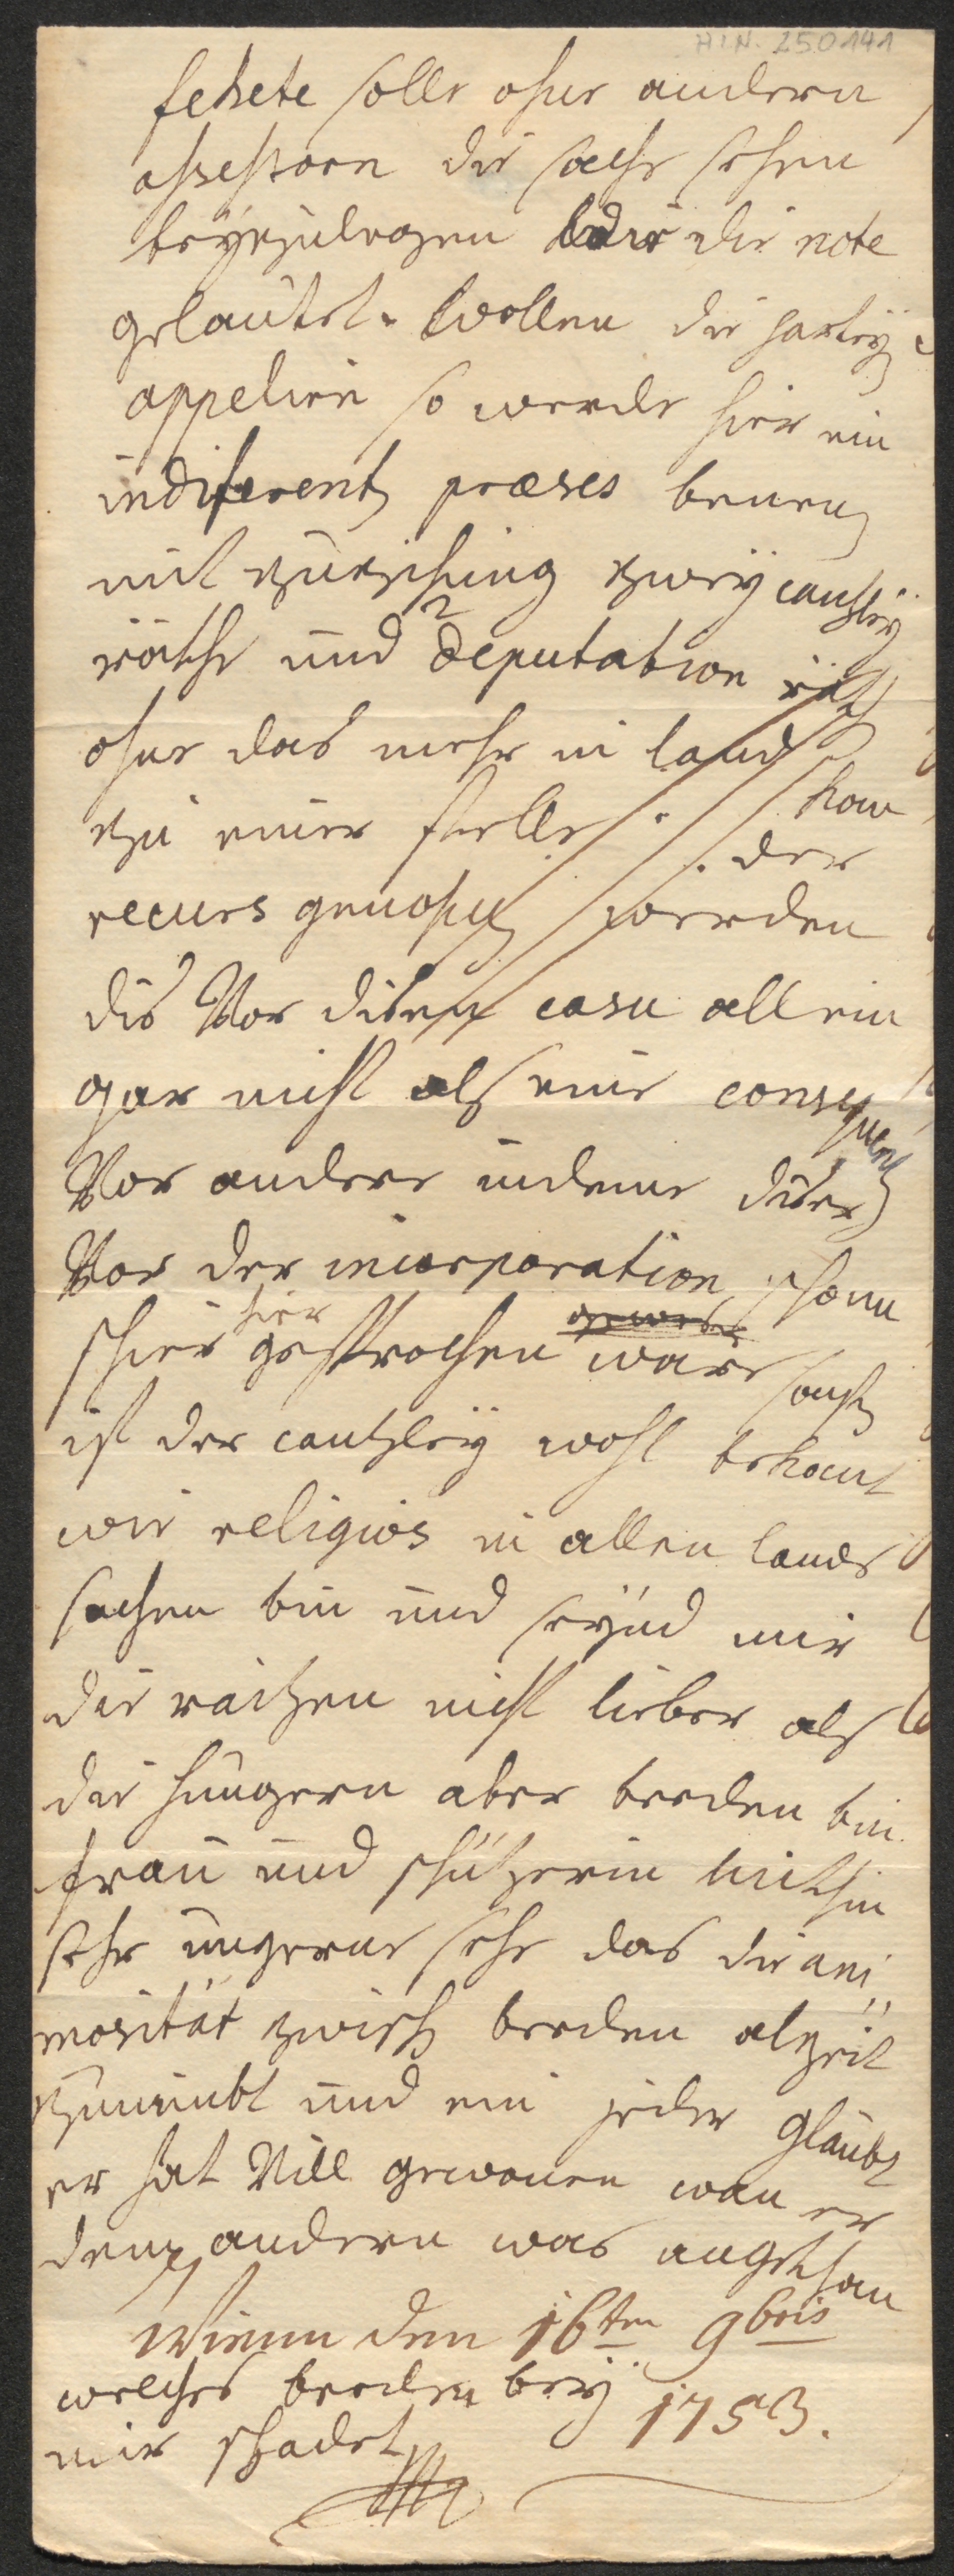 H.I.N. 250141
fekete solle ohne andern
assessorn die sache sehen
beyzulegen wie die note
gelautet. wollen die partey
appeliren so werde hier ein
indiferenten præses benenen
mit zuziehung zwey cantzley
räthe und 2 deputation räth
ohne das mehr in land
zu einer stelle kan
der
recurs genohmen werden
dis Vor disen casu allein
gar nicht als eine consequentz
Vor andere indeme diser
Vor der incorporation schonn
hier
hier gesprochen ware sonsten
ist der cantzley wohl bekant
wie religios in allen lands
sachen bin und seynd mir
die raitzen nicht lieber als
die hungern aber beeden bin
frau und schützerin mithin
sehr ungerne sehe das die ani
mositat zwischen beeden alzeit
zunimbt und ein jeder glaubt
er hat Vill gewonen wan er
dem andern was angethan
Wienn den 16ten 9bris
welches beeden bey 1753.
mir schadet